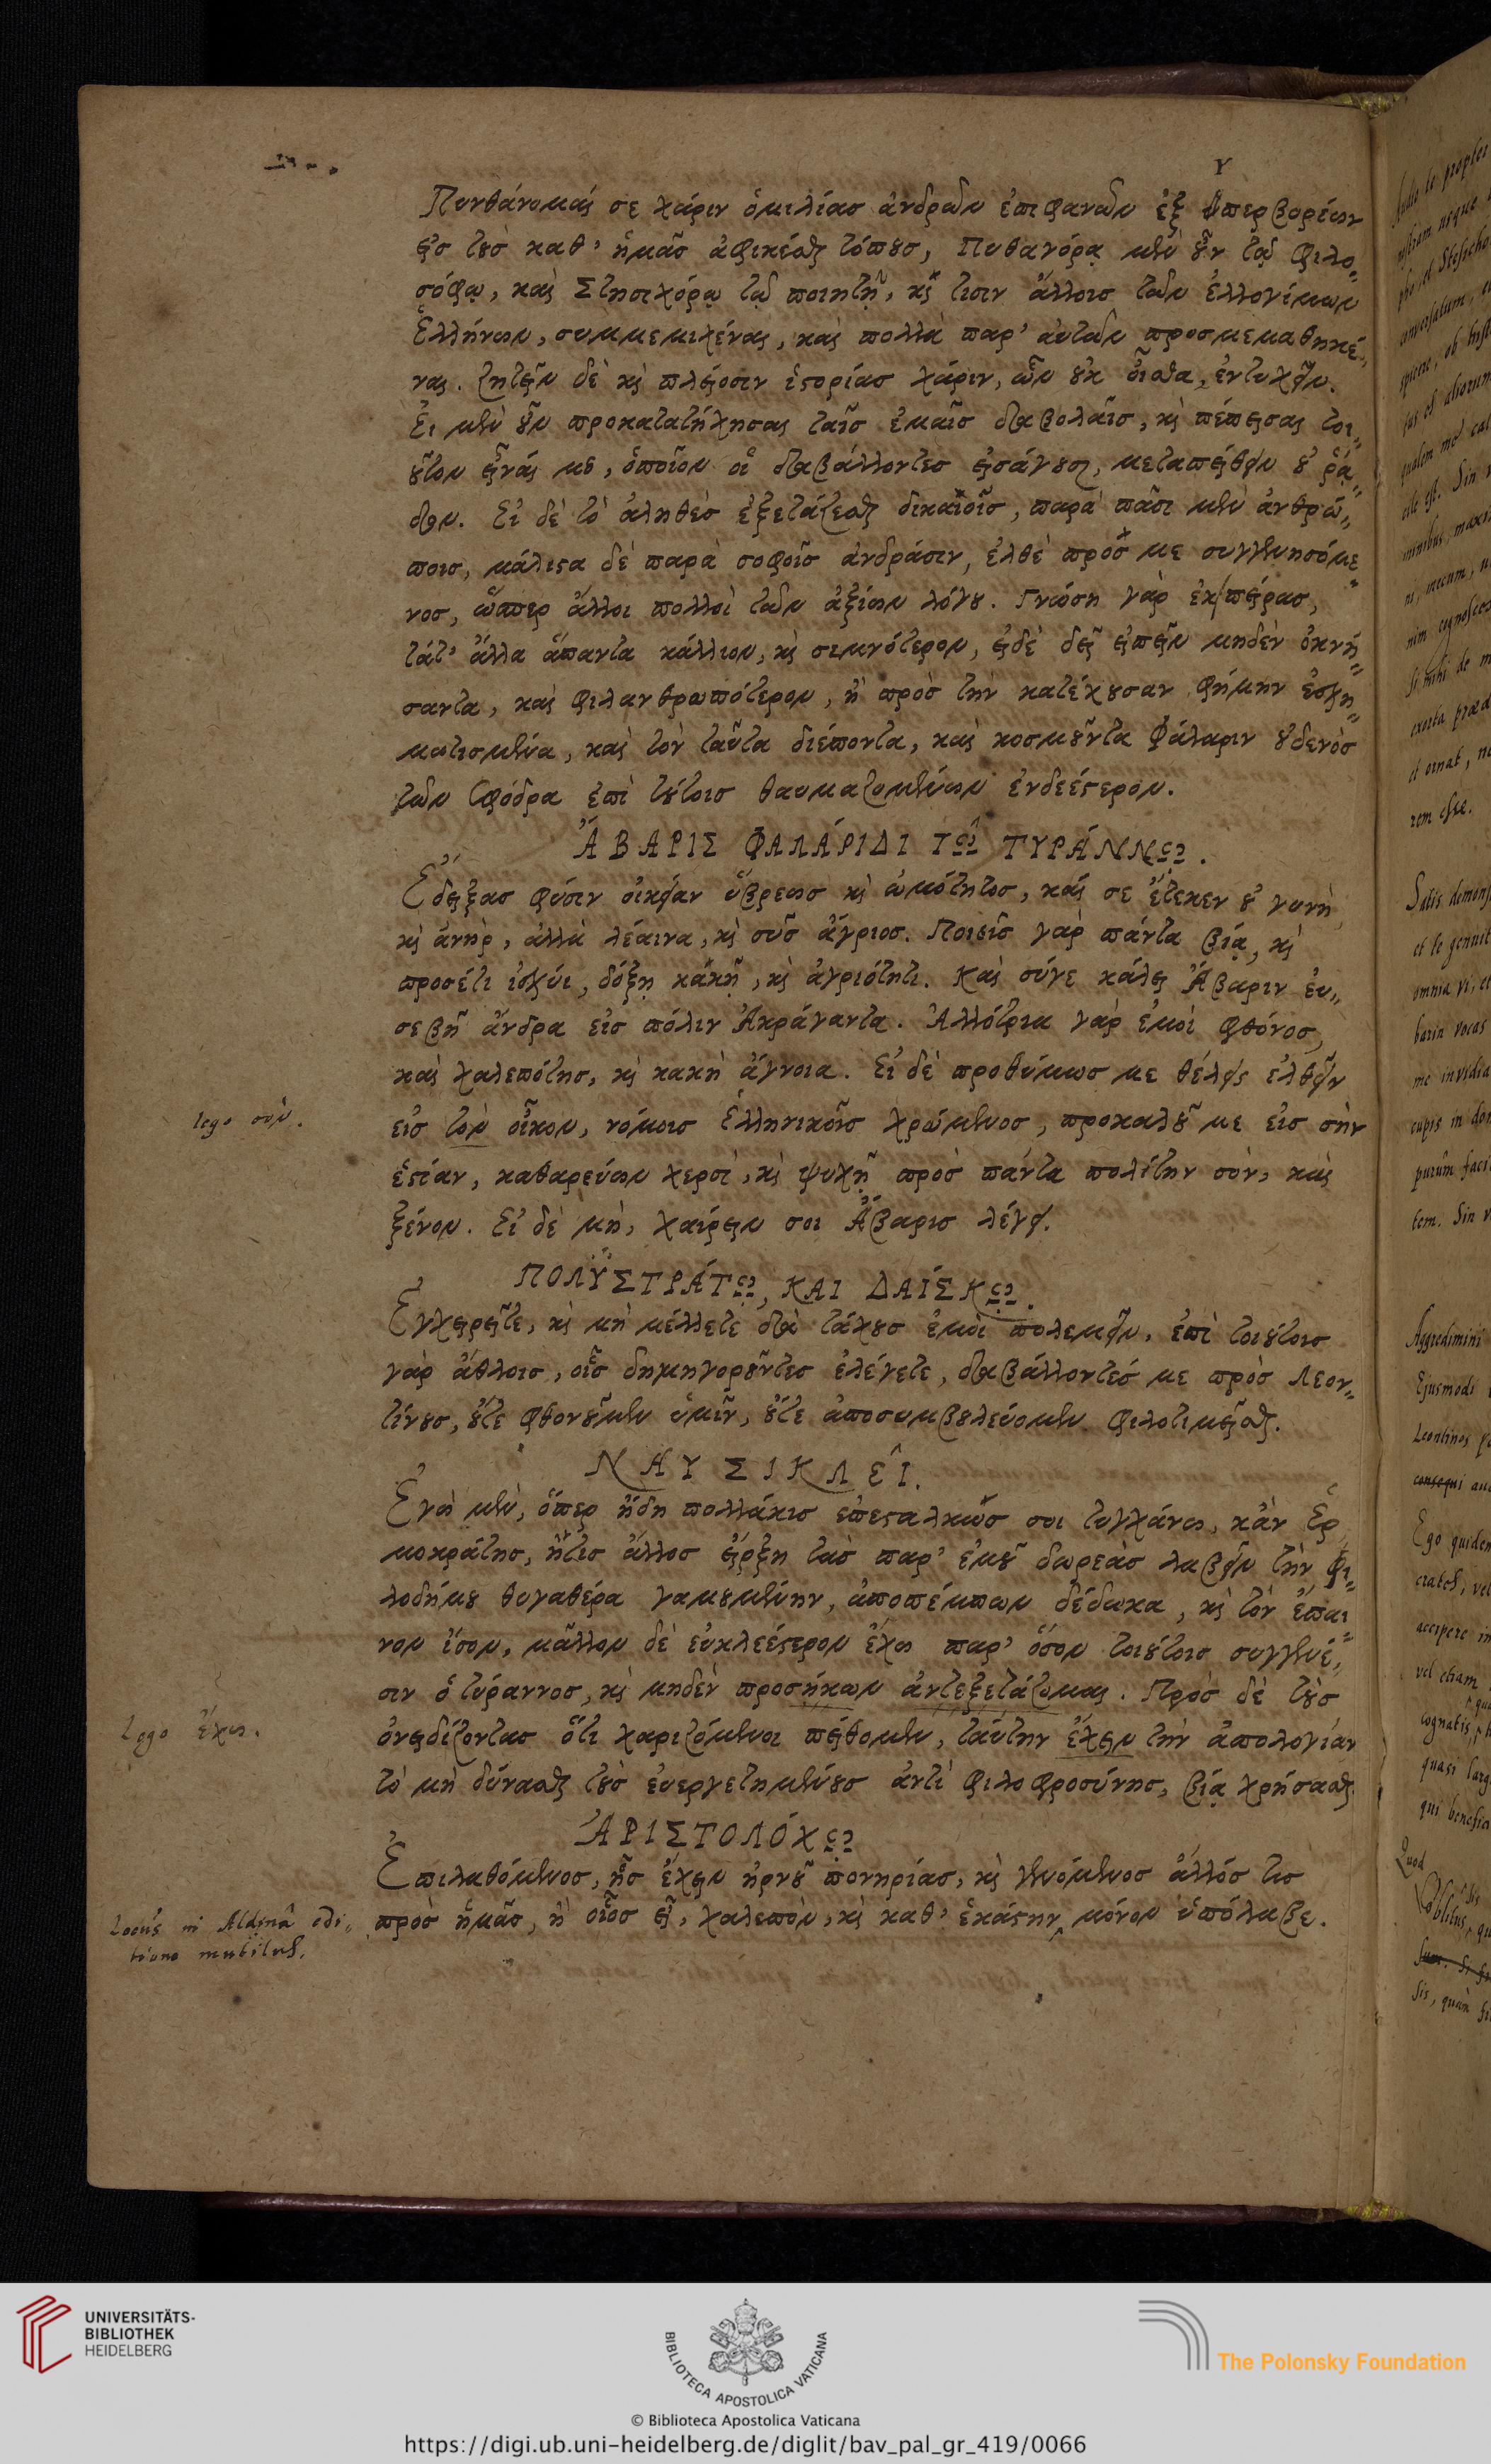 Υ
Πυνθάνομαί σε χάριν ὁμιλίας ἀνδρῶν ἐπιφανῶν ἐξ ὑπερβορέων
εἰς τοὺς καθ' ἡμᾶς ἀφικέσθαι τόπους, Πυθαγόρᾳ μὲν οὖν τῷ φιλο„
σόφῳ, καὶ Στησιχόρῳ τῷ ποιητῇ, καί τισιν ἄλλοις τῶν ἐλλογίμων
Ἑλλήνων, συμμεμιχέναι, καὶ πολλὰ παρ' αὐτῶν προσμεμαθηκέ„
ναι. ζητεῖν δὲ καὶ πλείοσιν ἱστορίας χάριν, ὧν οὐκ οἶσθα, ἐντυχεῖν.
Εἰ μὲν οὖν προκατατήχησαι ταῖς ἐμαῖς διαβολαῖς, καὶ πέπεισαι τοι„
οῦτον εἶναί με, ὁποῖον οἱ διαβάλλοντες εἰσάγουσι, μεταπείθειν οὐ ῥᾴ„
διον. Εἰ δὲ τὸ ἀληθὲς ἐξετάζεσθαι δικαιοῖς, παρὰ πᾶσι μὲν ἀνθρώ„
ποις, μάλιστα δὲ παρὰ σοφοῖς ἀνδράσιν, ἐλθὲ πρός με συγγενησόμε„
νος, ὥσπερ ἄλλοι πολλοὶ τῶν ἀξίων λόγου. Γνώσῃ γὰρ ἐκ πείρας,
τάτ' ἄλλα ἅπαντα κάλλιον, καὶ σεμνότερον, εἰδὲ δεῖ εἰπεῖν μηδὲν ὀκνή„
σαντα, καὶ φιλανθρωπότερον, ἢ πρὸς τὴν κατέχουσαν φήμην ἐσχη„
ματισμένα, καὶ τὸν ταῦτα διέποντα, καὶ κοσμοῦντα Φάλαριν οὐδενὸς
τῶν σφόδρα ἐπὶ τούτοις θαυμαζομένων ἐνδεέστερον.
ἌΒΑΡΙΣ ΦΑΛΆΡΙΔΙ ΤΩ͂Ι ΤΥΡΆΝΝΩΙ.
Ἔδειξας φύσιν οἰκείαν ὕβρεως καὶ ὠμότητος, καί σε ἔτεκεν οὐ γυνὴ
καὶ ἀνὴρ, ἀλλὰ λέαινα, καὶ σῦς ἄγριος. Ποιεῖς γὰρ πάντα βίᾳ, καὶ
προσέτι ἰσχύι, δόξῃ κακῇ, καὶ ἀγριότητι. Καὶ σύγε κάλει Ἄβαριν εὐ„
σεβῆ ἄνδρα εἰς πόλιν Ἀκράγαντα. Ἀλλότρια γὰρ ἐμοὶ φθόνος,
καὶ χαλεπότης, καὶ κακὴ ἄγνοια. Εἰ δὲ προθύμως με θέλεις ἐλθεῖν
lego σὸν.
εἰς τὸν οἶκον, νόμοις Ἑλληνικοῖς χρώμενος, προκαλοῦ με εἰς σὴν
ἑστίαν, καθαρεύων χερσὶ, καὶ ψυχῇ πρὸς πάντα πολίτην σὸν, καὶ
ξένον. Εἰ δὲ μὴ, χαίρειν σοι Ἄβαρις λέγει.
ΠΟΛΥΣΤΡΆΤΩΙ, ΚΑΙ ΔΑΙΣΚΩΙ.
Ἐγχειρεῖτε, καὶ μὴ μέλλετε διὰ τάχους ἐμοὶ πολεμεῖν, ἐπὶ τοιούτοις
γὰρ ἄθλοις, οἷς δημηγοροῦντες ἐλέγετε, διαβάλλοντές με πρὸς Λεον„
τίνους, οὔτε φθονοῦμεν ὑμῖν, οὔτε ἀποσυμβουλεύομεν φιλοτιμεῖσθαι.
ΝΑΥΣΙΚΛΕΙ͂.
Ἐγὼ μὲν, ὅπερ ἤδη πολλάκις ἐπεσταλκώς σοι τυγχάνω, κἂν Ἑρ
μοκράτης, ἤτις ἄλλος εἴρξῃ τὰς παρ' ἐμοῦ δωρεὰς λαβεῖν τὴν Φι„
λοδήμου θυγατέρα γαμουμένην, ἀποπέμπων δέδωκα, καὶ τὸν ἔπαι„
νον ἴσον, μᾶλλον δὲ εὐκλεέστερον ἔχω παρ' ὅσον τοιούτοις συγγενέ„
σιν ὁ τύραννος, καὶ μηδὲν προσήκων ἀντεξετάζομαι. Πρὸς δὲ τοὺς
Lego ἔχω.
ὀνειδίζοντας ὅτι χαριζόμενοι πείθομεν, ταύτην ἔχειν τὴν ἀπολογίαν
τὸ μὴ δύνασθαι τοὺς εὐεργετημένους ἀντὶ φιλοφροσύνης, βίᾳ χρήσασθαι.
ἈΡΙΣΤΟΛΌΧΩΙ
Ἐπιλαθόμενος, ἧς ἔχειν ἠρνοῦ πονηρίας, καὶ γενόμενος ἄλλός τις
Locus in Aldinâ edi„
tione mutilus.
πρὸς ἡμᾶς, ἢ οἷος εἶ, χαλεπὸν, καὶ καθ' ἑκάστην μόνον ὑπόλαβε.
UNIVERSITÄTS-
BIBLIOTHEK
HEIDELBERG
BIBLIOTECA APOSTOLICA VATICANA
The Polonsky Foundation
© Biblioteca Apostolica Vaticana
https://digi.ub.uni-heidelberg.de/diglit/bav_pal_gr_419/0066